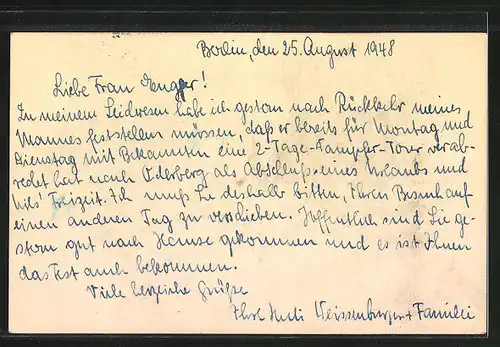 Berlin, den 25. August 1948
Liebe Frau !
Zu meinem Leidwesen habe ich gestern nach Rückkehr meines
Mannes feststellen müssen, daß er bereits für Montag und
Dienstag mit Bekannten eine 2-Tage-Dampfer-Tour verab-
redet hat nach Oderberg als Abschluß eines Urlaubs und
Freizeit. Ich muß Sie deshalb bitten, Ihren Besuch auf
einen anderen Tag zu verschieben. Hoffentlich sind Sie ge-
stern gut nach Hause gekommen und es ist Ihnen
das Fest auch bekommen.
Viele herzliche Grüße
Ihre Weissenburger + Familie